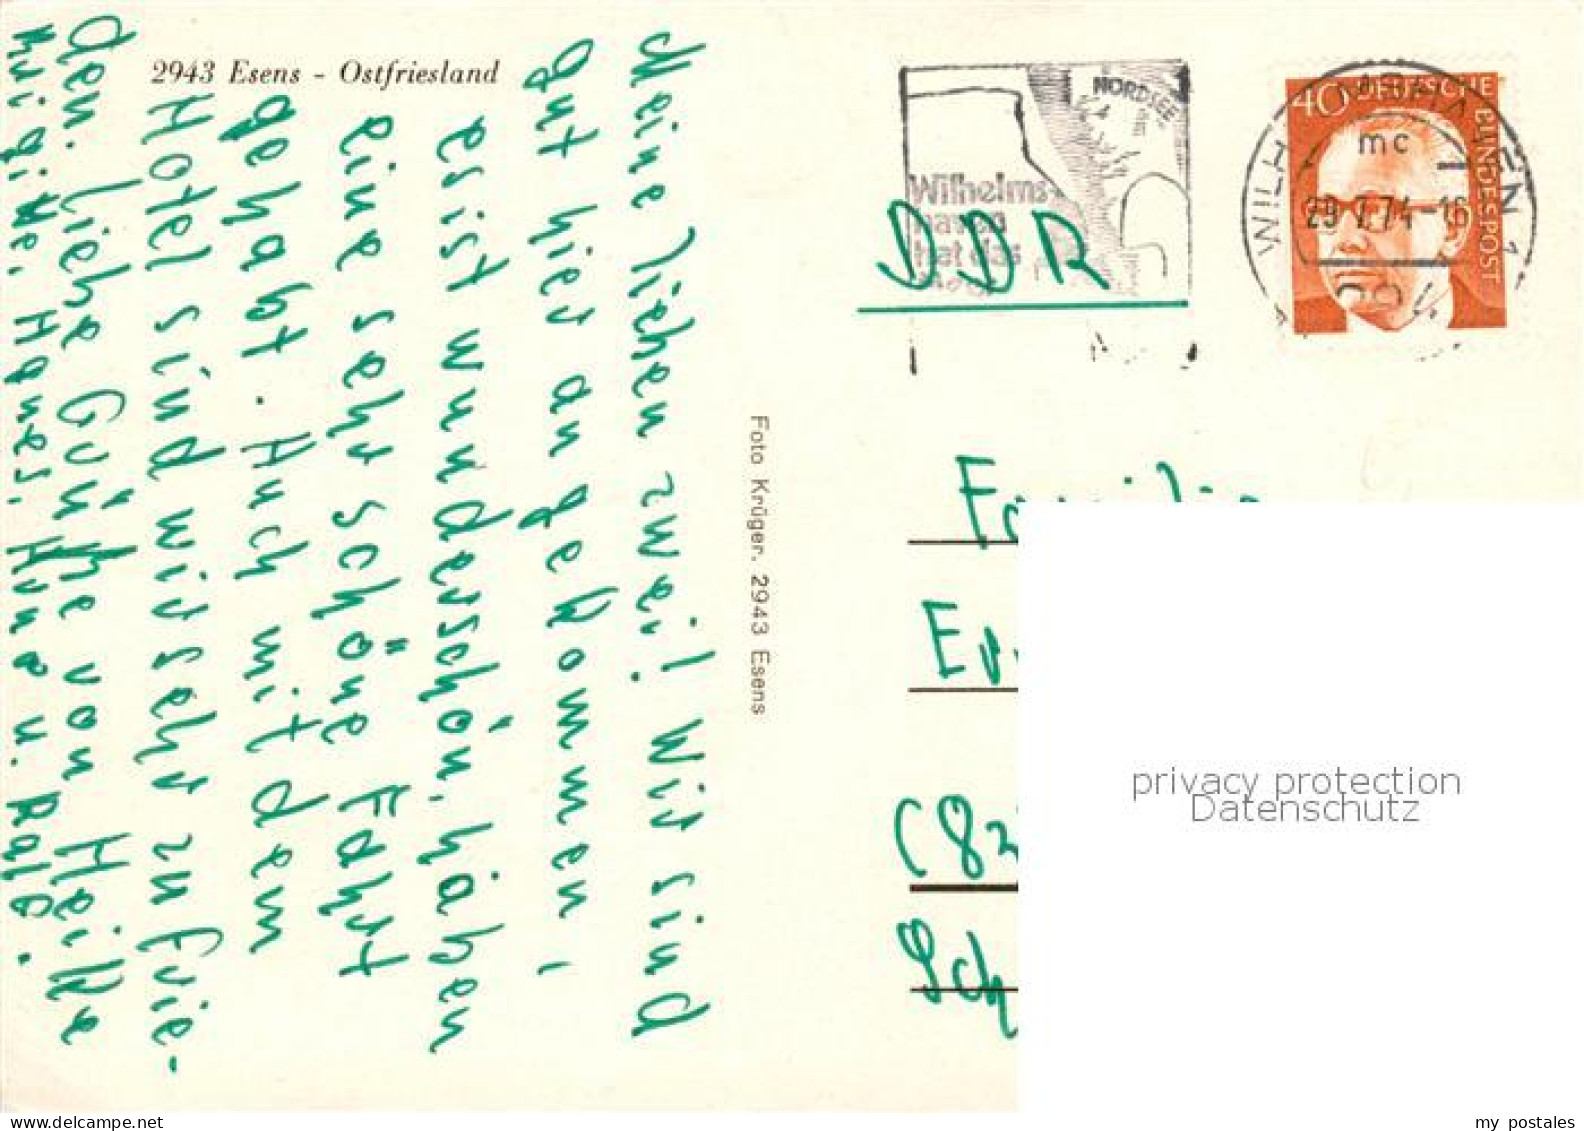 2943 Esens - Ostfriesland
Meine lieben zwei! Wir sind
gut hier angekommen,
es ist wunderschön, haben
eine sehr schöne Fahrt
gehabt. Auch mit dem
Hotel sind wir sehr zufrie-
den. liebe Grüße von Heike
Brigitte, Hannes, u. Ralf.
Foto Krüger, 2943 Esens
NORDSEE
Wilhelms-
haven
hat das
DDR
40 DEUTSCHE BUNDESPOST
WILHELMSHAVEN 1
mc
29.7.74-16
Familie
(82
Sch
privacy protection
Datenschutz
my postales